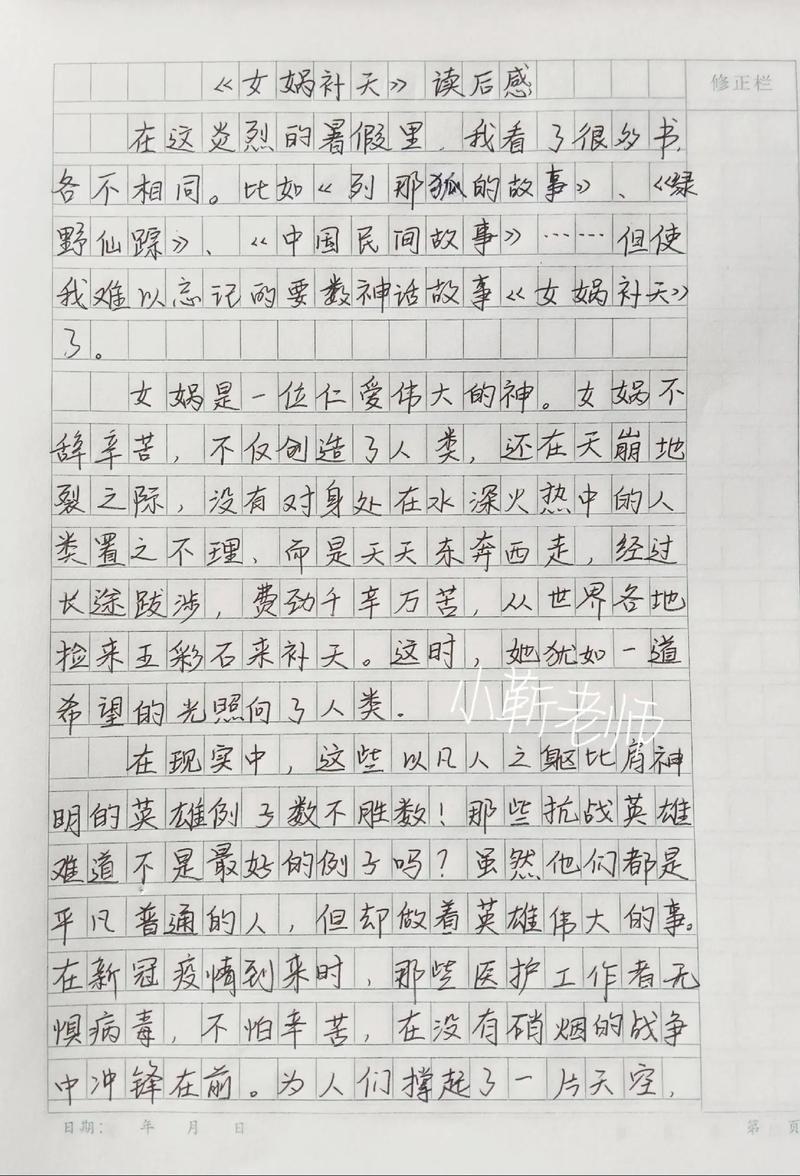 《女娲补天》读后感
修正栏
在这炎烈的暑假里，我看了很多书，
各不相同。比如《列那狐的故事》、《绿
野仙踪》、《中国民间故事》……但使
我难以忘记的要数神话故事《女娲补天》
了。
女娲是一位仁爱伟大的神。女娲不
辞辛苦，不仅创造了人类，还在天崩地
裂之际，没有对身处在水深火热中的人
类置之不理、而是天天东奔西走，经过
长途跋涉，费劲千辛万苦，从世界各地
捡来五彩石来补天。这时，她犹如一道
希望的光照向了人类。
小靳老师
在现实中，这些以凡人之躯比肩神
明的英雄例子数不胜数！那些抗战英雄
难道不是最好的例子吗？虽然他们都是
平凡普通的人，但却做着英雄伟大的事。
在新冠疫情到来时，那些医护工作者无
惧病毒，不怕辛苦，在没有硝烟的战争
中冲锋在前。为人们撑起了一片天空，
日期： 年 月 日
第 页